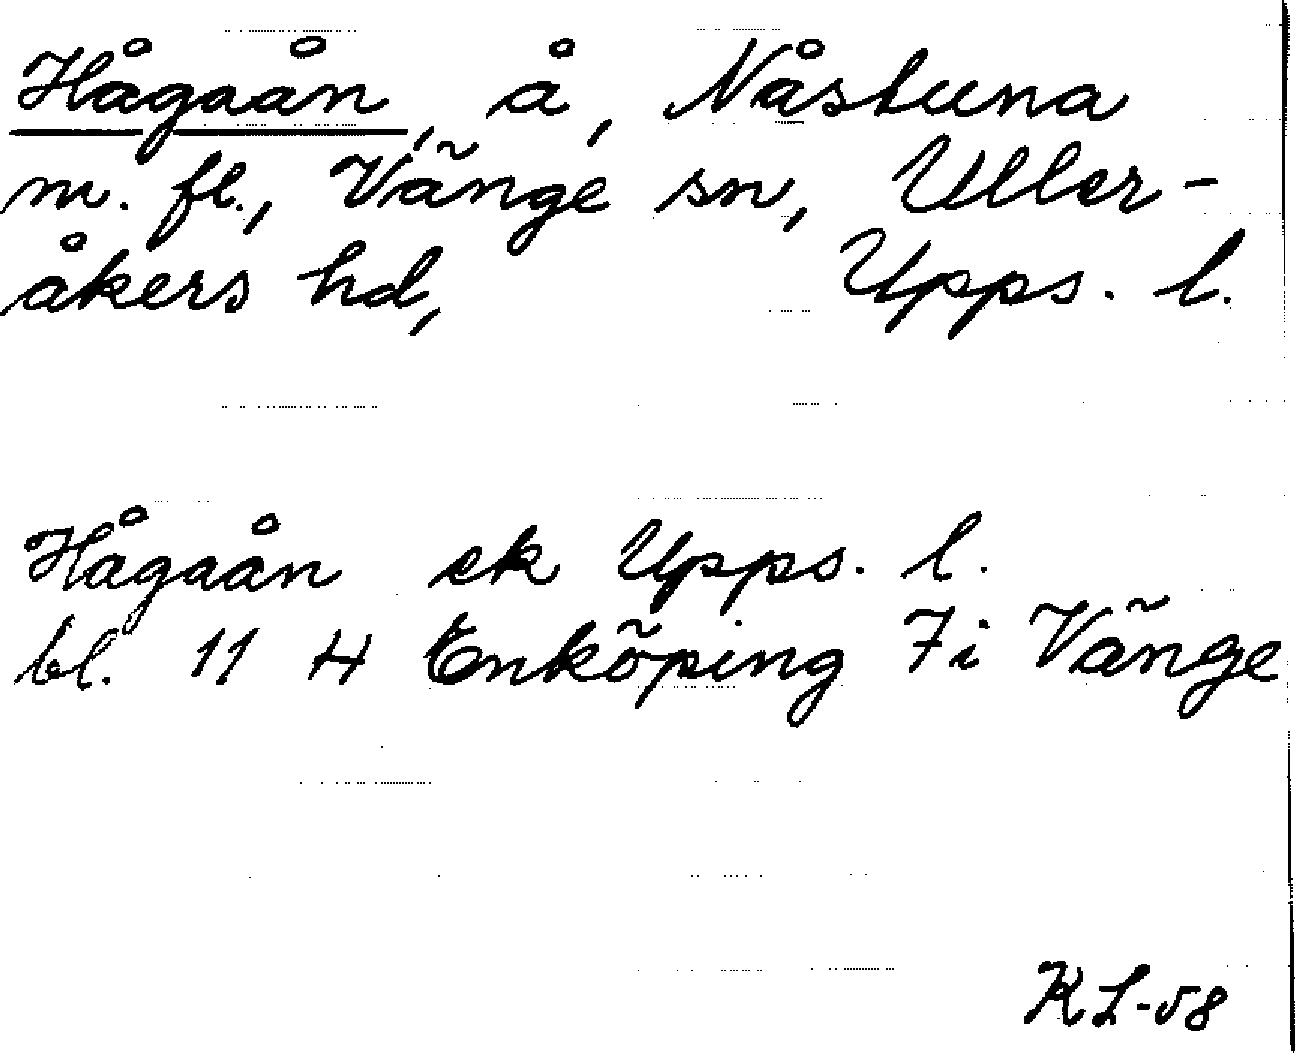 Hågaån, å, Nåstuna
m. fl., Vänge sn, Uller-
åkers hd, Upps. l.
Hågaån ek Upps. l.
bl. 11 H Enköping 7i Vänge
KL-58